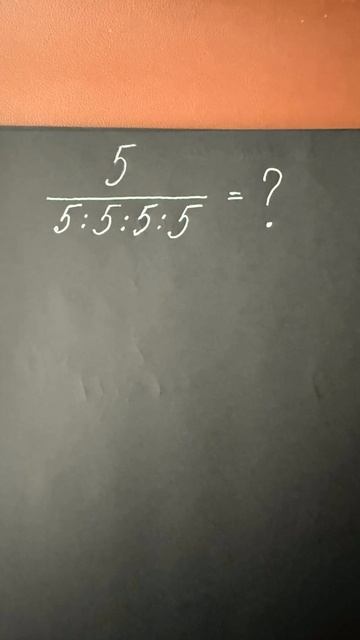 5
5:5:5:5 = ?